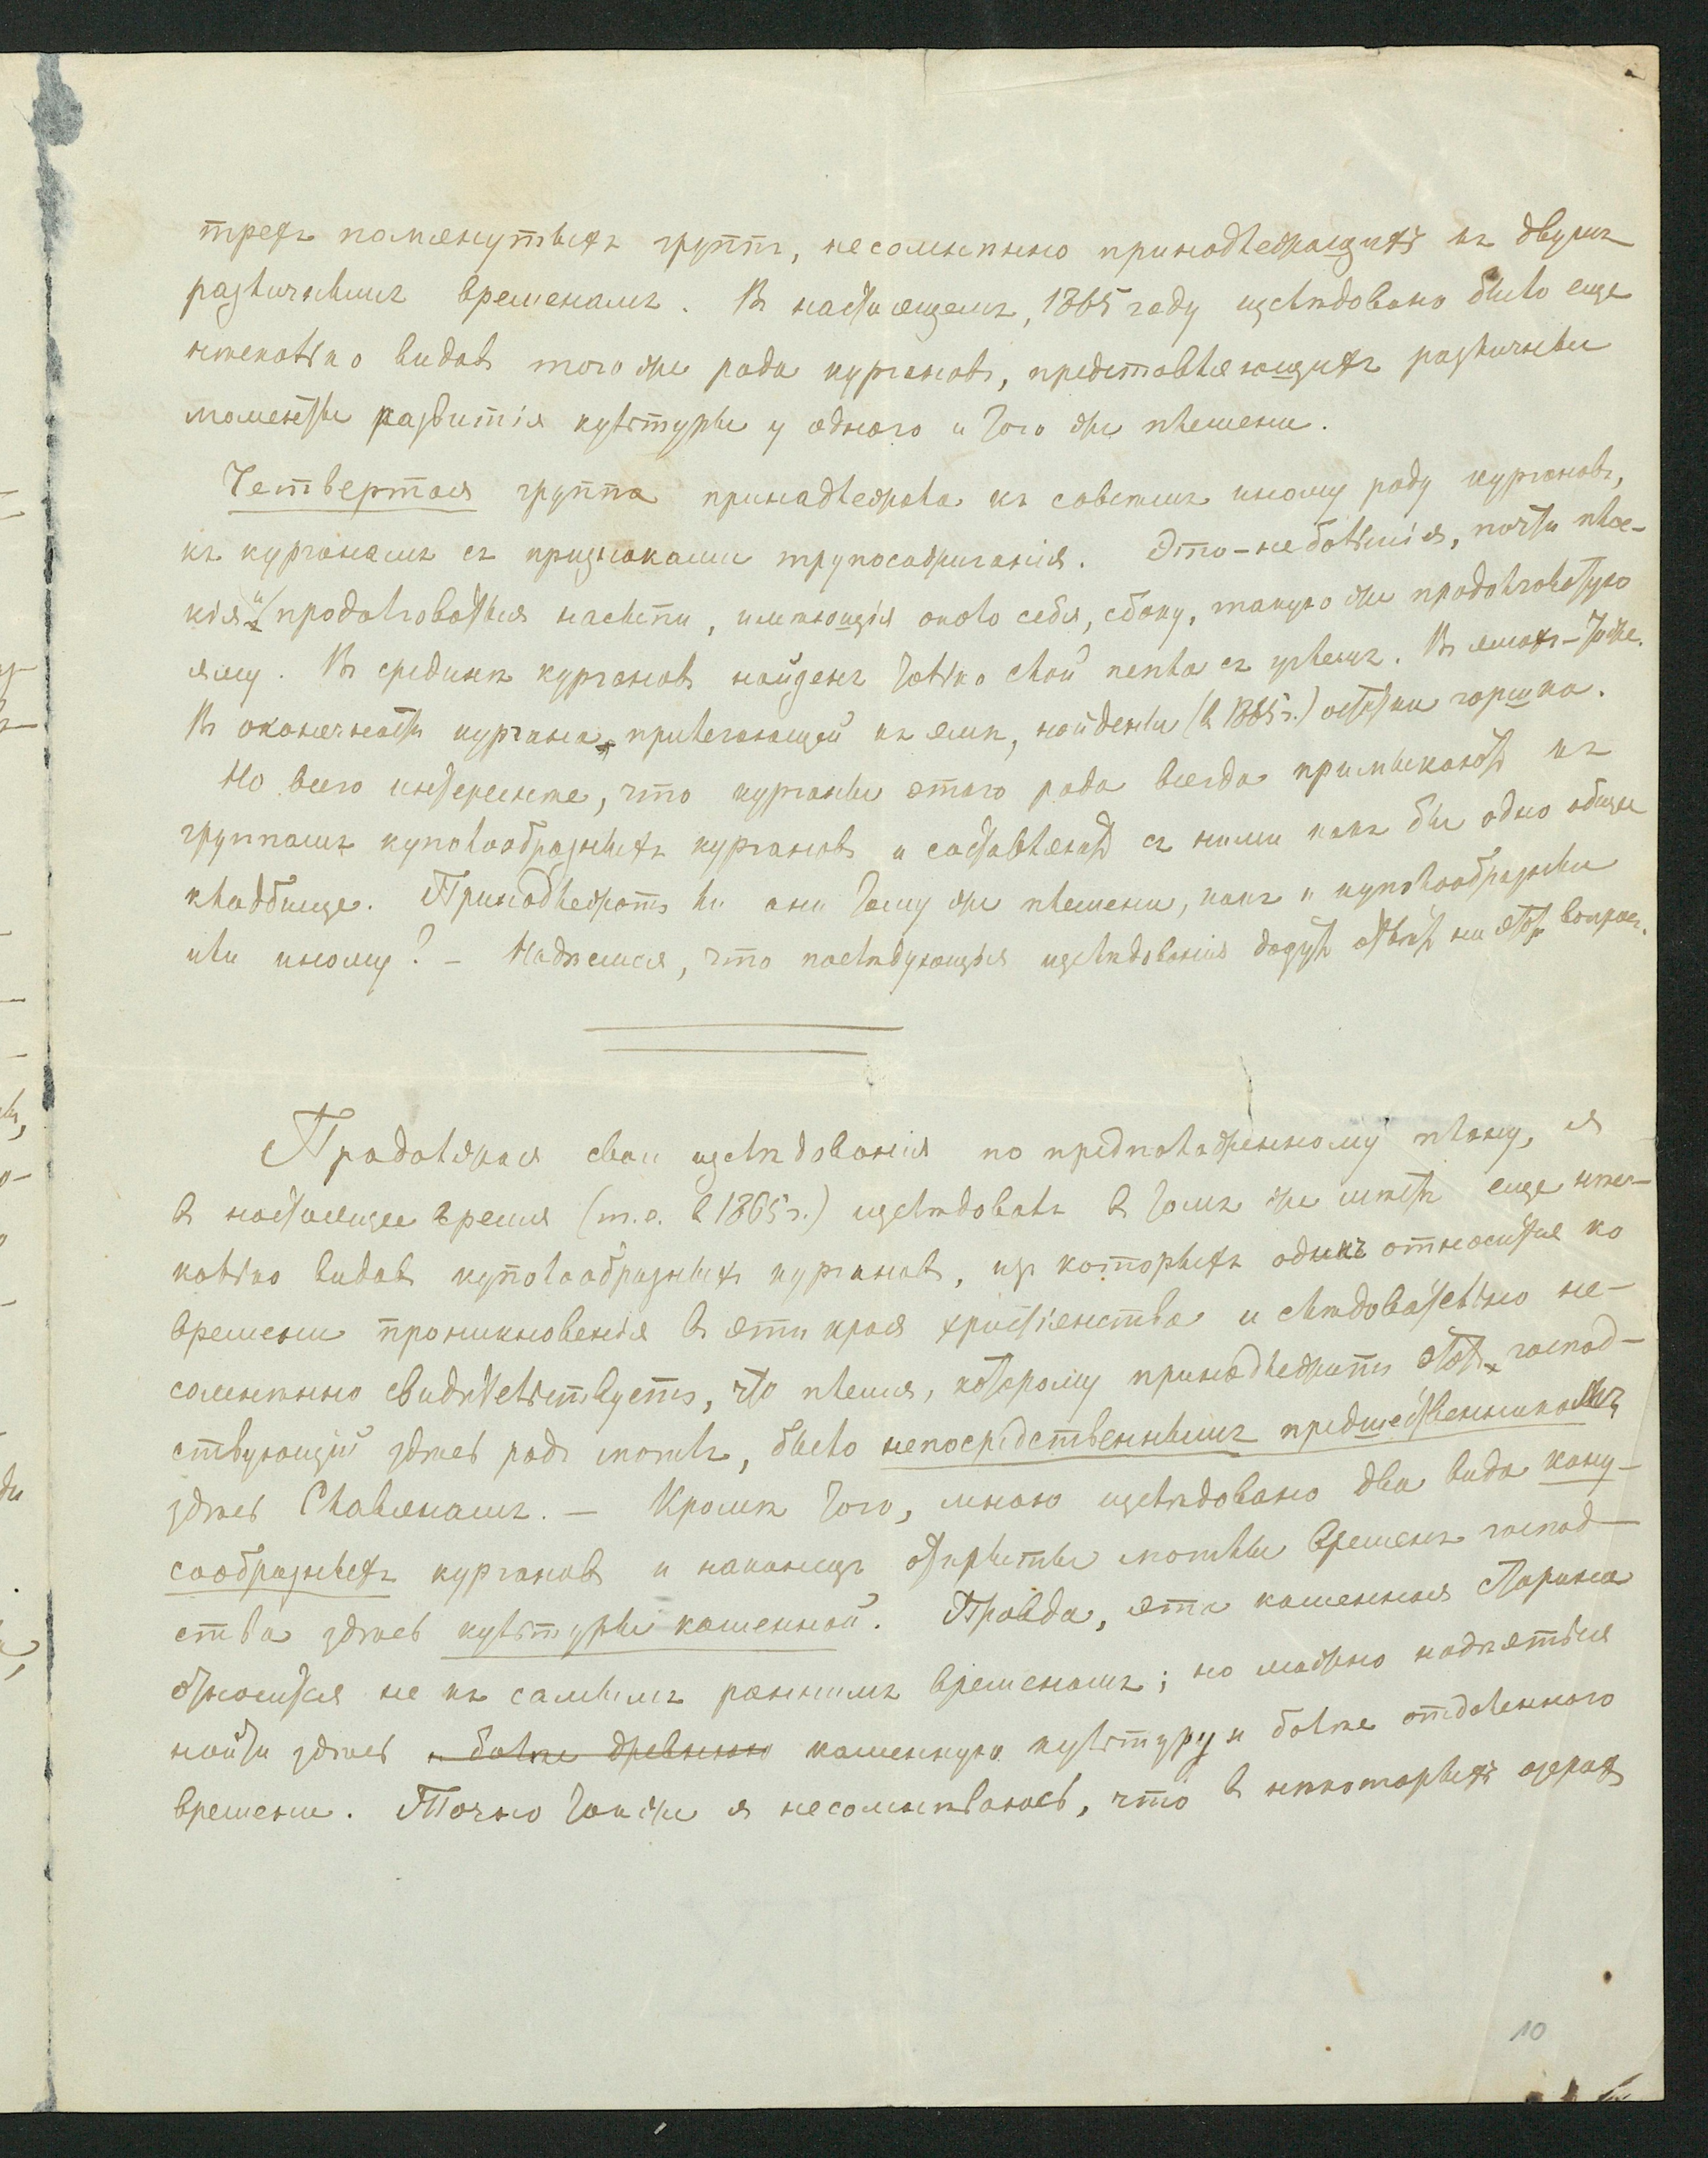 трехъ помянутыхъ группъ, несомнѣнно принадлежащихъ къ двумъ
различнымъ временамъ. Въ настоящемъ, 1865 году изслѣдовано было еще
нѣсколько видовъ того же рода кургановъ, представляющихъ различные
моменты развитія культуры у одного и того же племени.
Четвертая группа принадлежала къ совсѣмъ иному роду кургановъ,
къ курганамъ съ признаками трупосожиганія. Это – небольшія, почти плос-
кія и продолговатыя насыпи, имѣющія около себя, сбоку, такую же продолговатую
яму. Въ срединѣ кургановъ найденъ только слой пепла съ углемъ. Въ ямахъ – тоже.
Въ оконечности кургана, прилегающей къ ямѣ, найдены (въ 1865 г.) остатки горшка.
Но всего интереснѣе, что курганы этого рода всегда примыкаютъ къ
группамъ куполообразныхъ кургановъ и составляютъ съ ними какъ бы одно общее
кладбище. Принадлежатъ ли они тому же племени, какъ и куполообразные
или иному? – Надѣемся, что послѣдующія изслѣдованія дадутъ отвѣтъ на этотъ вопросъ.
Продолжая свои изслѣдованія по предположенному плану, я
въ настоящее время (т.е. въ 1865 г.) изслѣдовалъ въ томъ же мѣстѣ еще нѣс-
колько видовъ куполообразныхъ кургановъ, изъ которыхъ одинъ относится ко
времени проникновенія въ эти края христіанства и слѣдовательно не-
сомнѣнно свидѣтельствуетъ, что племя, которому принадлежитъ этотъ господ-
ствующій здѣсь родъ могилъ, было непосредственнымъ предшественникомъ
здѣсь Славянамъ. – Кромѣ того, мною изслѣдовано два вида кону-
сообразныхъ кургановъ и наконецъ открыты могилы временъ господ-
ства здѣсь культуры каменной. Правда, эта каменная старина
относится не къ самымъ раннимъ временамъ; но можно надѣяться
найти здѣсь и болѣе древнюю каменную культуру и болѣе отдаленнаго
времени. Точно также я несомнѣваюсь, что въ нѣкоторыхъ озерахъ
10